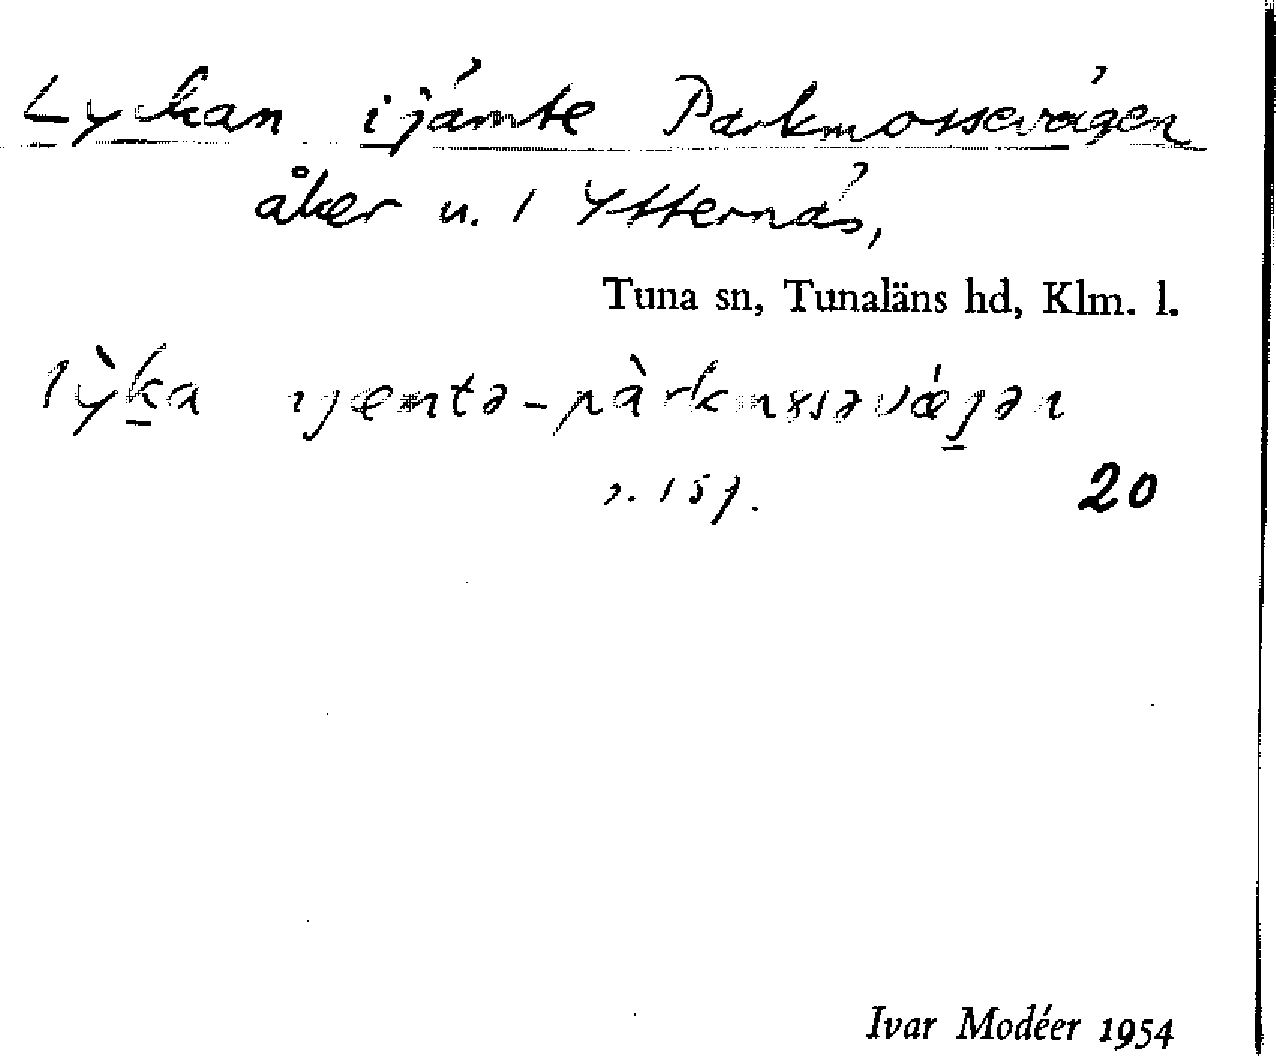 Lyckan ijämte Parkmossevägen
åker u. 1 Ytternäs,
Tuna sn, Tunaläns hd, Klm. l.
lỳka ıjæmtə-pàrkmɤsəvǽgən
s. 157. 20
Ivar Modéer 1954